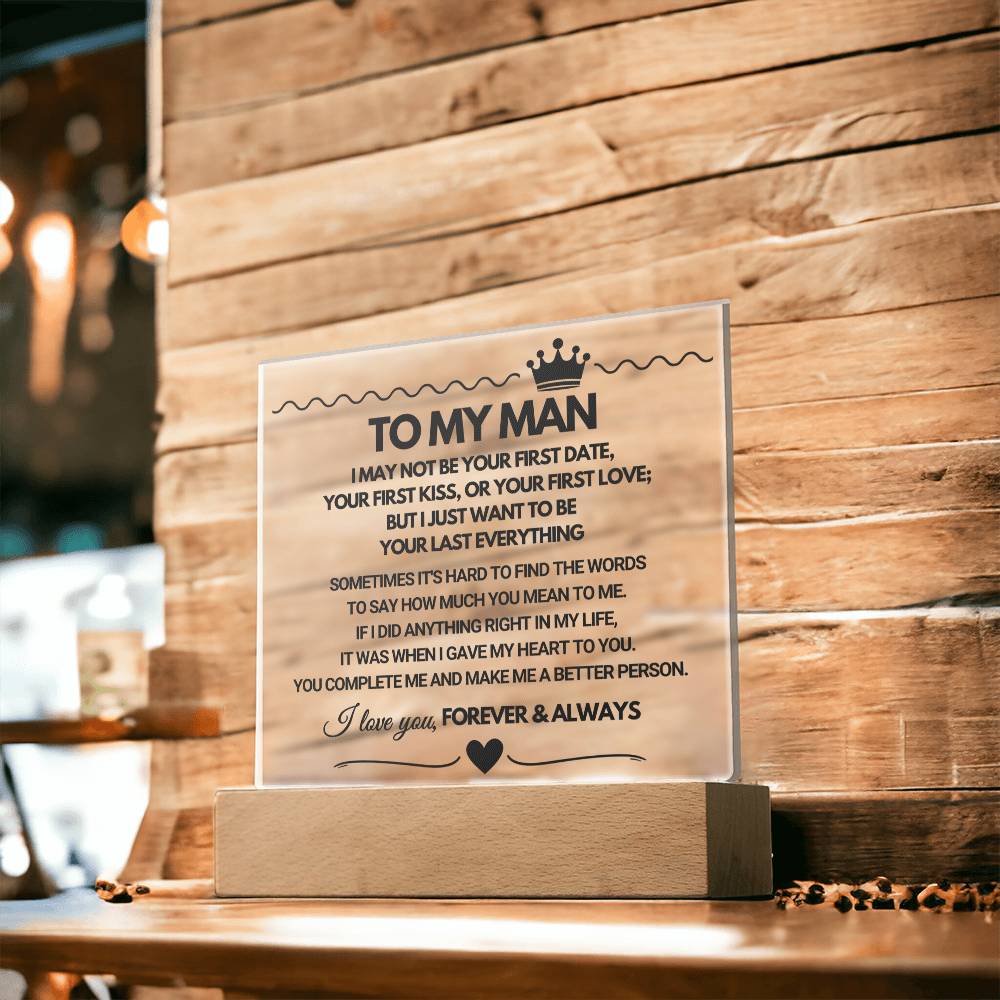 TO MY MAN
I MAY NOT BE YOUR FIRST DATE,
YOUR FIRST KISS, OR YOUR FIRST LOVE;
BUT I JUST WANT TO BE
YOUR LAST EVERYTHING
SOMETIMES IT'S HARD TO FIND THE WORDS
TO SAY HOW MUCH YOU MEAN TO ME.
IF I DID ANYTHING RIGHT IN MY LIFE,
IT WAS WHEN I GAVE MY HEART TO YOU.
YOU COMPLETE ME AND MAKE ME A BETTER PERSON.
I love you, FOREVER & ALWAYS